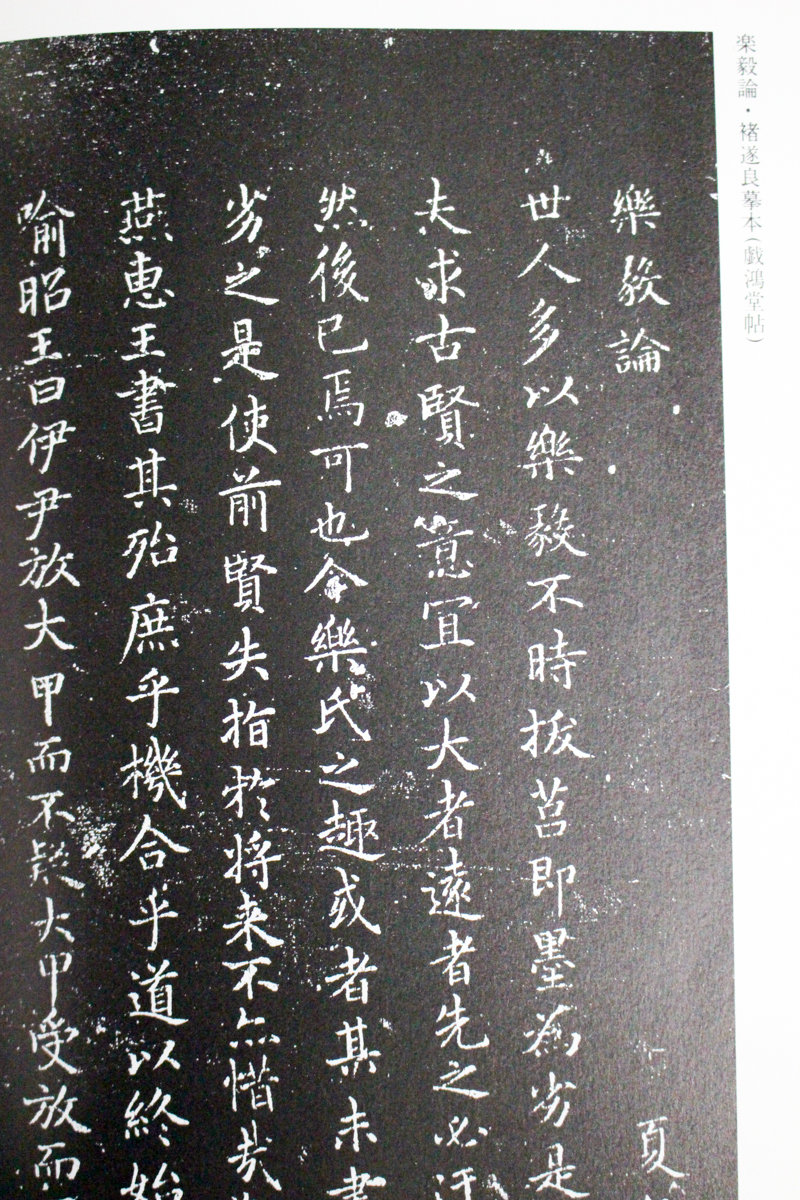 楽毅論・褚遂良摹本(戯鴻堂帖)
樂毅論 夏
世人多以樂毅不時拔莒即墨為劣是
夫求古賢之意宜以大者遠者先之必迂
然後已焉可也今樂氏之趣或者其未盡
劣之是使前賢失指於將来不亦惜哉
燕惠王書其殆庶乎機合乎道以終始
喻昭王曰伊尹放大甲而不疑大甲受放而